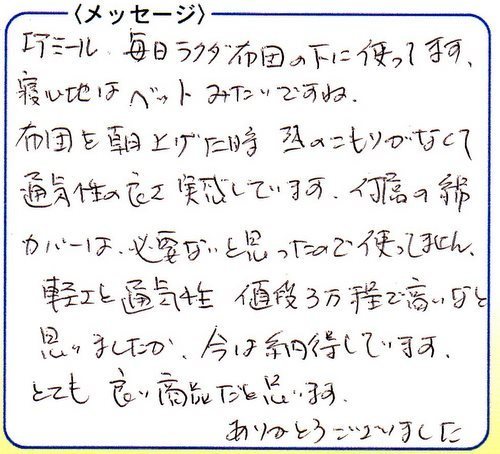 〈メッセージ〉
エアミール 毎日ラクダ布団の下に使ってます、
寝心地はベットみたいですね.
布団を朝上げた時 熱のこもりがなくて
通気性の良さ実感しています. 付属の綿
カバーは、必要ないと思ったので使ってません、
軽さと通気性 値段3万程で高いなと
思いましたが、今は納得しています.
とても 良い商品だと思います.
ありがとうございました